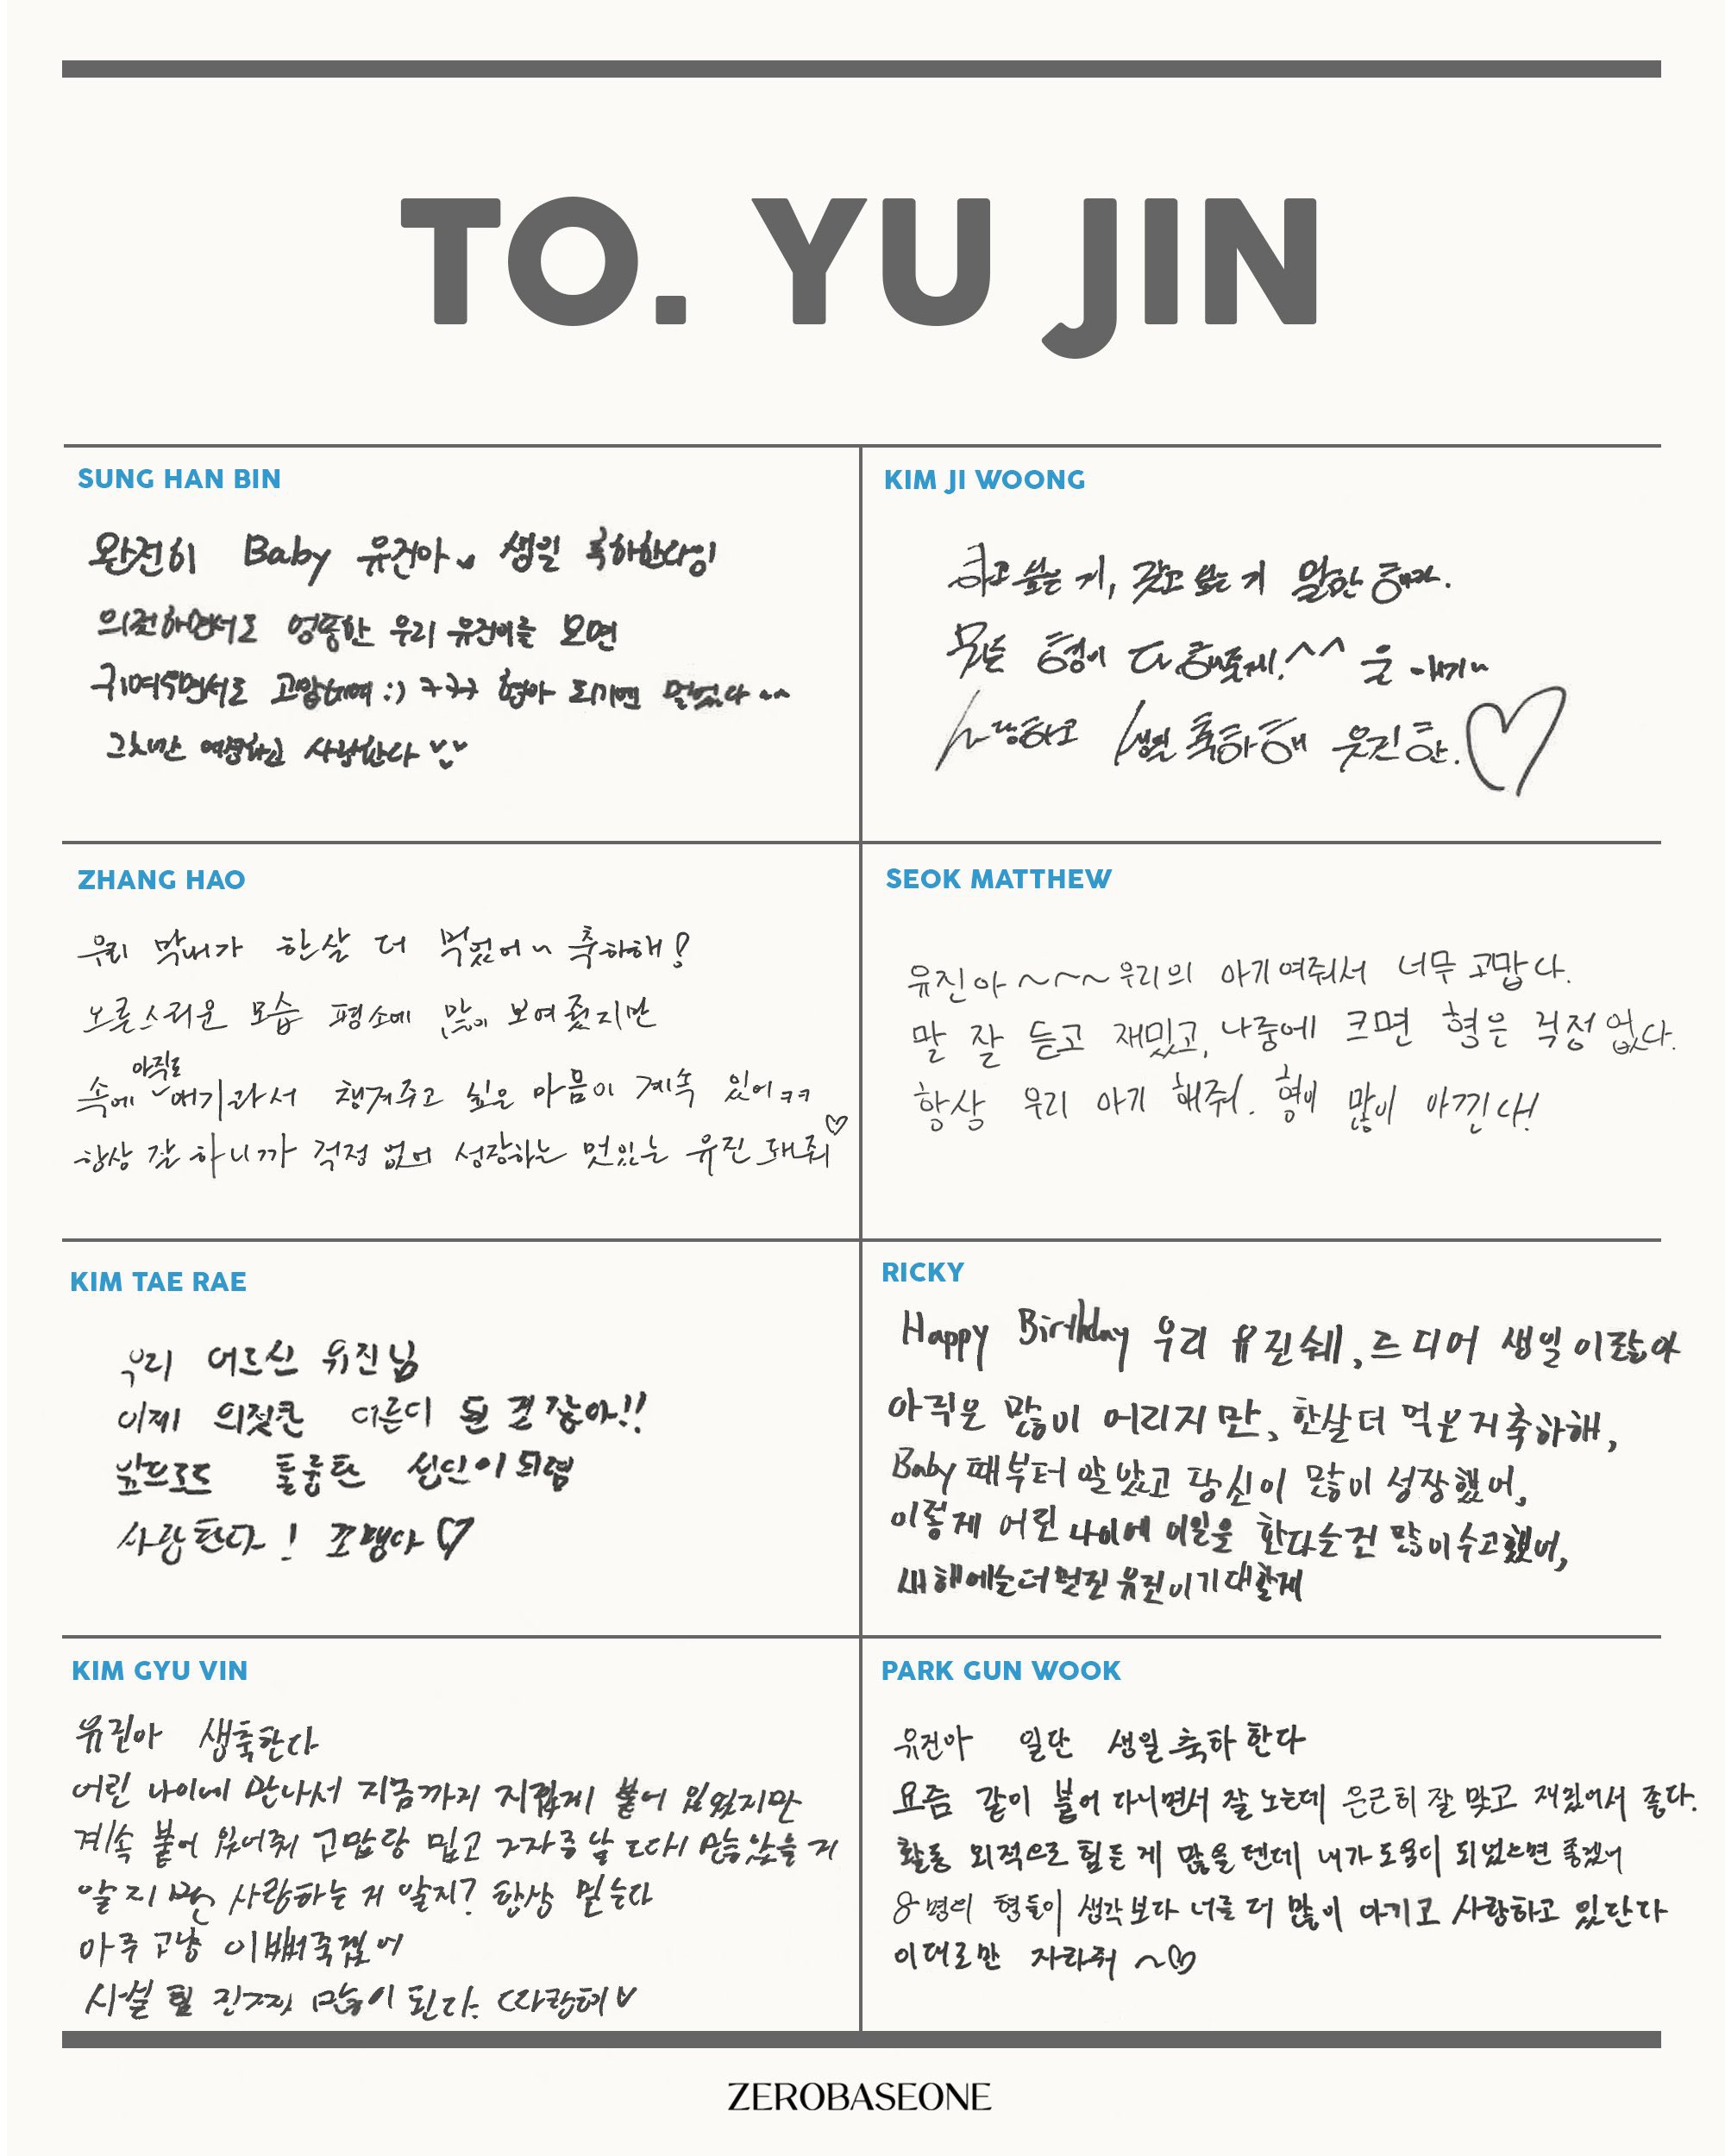 TO. YU JIN
SUNG HAN BIN
완전히 Baby 유진아 생일 축하한다잉
의젓하면서도 엉뚱한 우리 유진이를 보면
귀여우면서도 고맙네여 :) ㅋㅋㅋ 형아 되기엔 멀었다~~
그치만 사랑한다
KIM JI WOONG
하고 싶은 거, 갖고 싶은 거 말만 해라.
뭐든 형이 다 해줄게! ^^ 울 애기~
사랑하고 생일 축하해 유진 한. ♡
ZHANG HAO
우리 막내가 한살 더 먹었어~ 축하해!
어른스러운 모습 평소에 많이 보여줬지만
속에 아직도 애기라서 챙겨주고 싶은 마음이 계속 있어ㅋㅋ
항상 잘 하니까 걱정 없어 성장하는 멋있는 유진 돼줘 ♡
SEOK MATTHEW
유진아~~~우리의 아기여줘서 너무 고맙다.
말 잘 듣고 재밌고, 나중에 크면 형은 걱정 없다.
항상 우리 아기 해줘. 형이 많이 아낀다!
KIM TAE RAE
우리 어르신 유진님
이제 의젓한 어른이 된 것 같아!!
앞으로도 훌륭한 성인이 되렴
사랑한다! 쪼맹아 ♡
RICKY
Happy Birthday 우리 유진쉐, 드디어 생일이잖아
아직은 많이 어리지만, 한살 더 먹은거 축하해,
Baby 때부터 알았고 당신이 많이 성장했어,
이렇게 어린 나이에 이일을 한다는건 많이 수고했어,
새해에는 더 멋진 유진이 기대할게
KIM GYU VIN
유진아 생축한다
어린 나이에 만나서 지금까지 지랍게 붙어 있었지만
계속 붙어 있어줘 고맙당 밉고 자주
알지만 사랑하는 거 알지? 항상 믿는다
아주 고냥 이뻐죽겠어
의 힘 진짜 많이 된다. 사랑해 ♡
PARK GUN WOOK
유진아 일단 생일축하 한다
요즘 같이 붙어 다니면서 잘 노는데 은근히 잘 맞고 재밌어서 좋다.
활동 외적으로 힘든 게 많을 텐데 내가 도움이 되었으면 좋겠어
8명의 형들이 생각보다 너를 더 많이 아끼고 사랑하고 있단다
이대로만 자라줘 ~♡
ZEROBASEONE